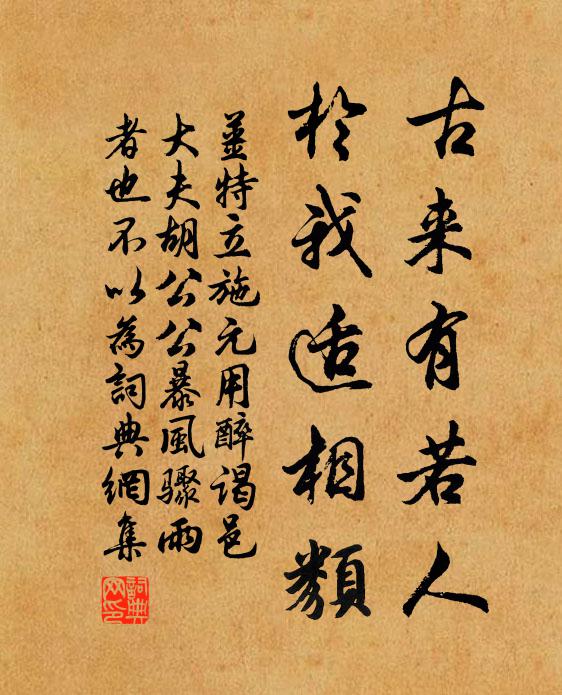 古来有若人
於我适相類
薑特立施元用醉謁邑
大夫胡公公暴風驟雨
者也不以為詞典網集
詞典网印